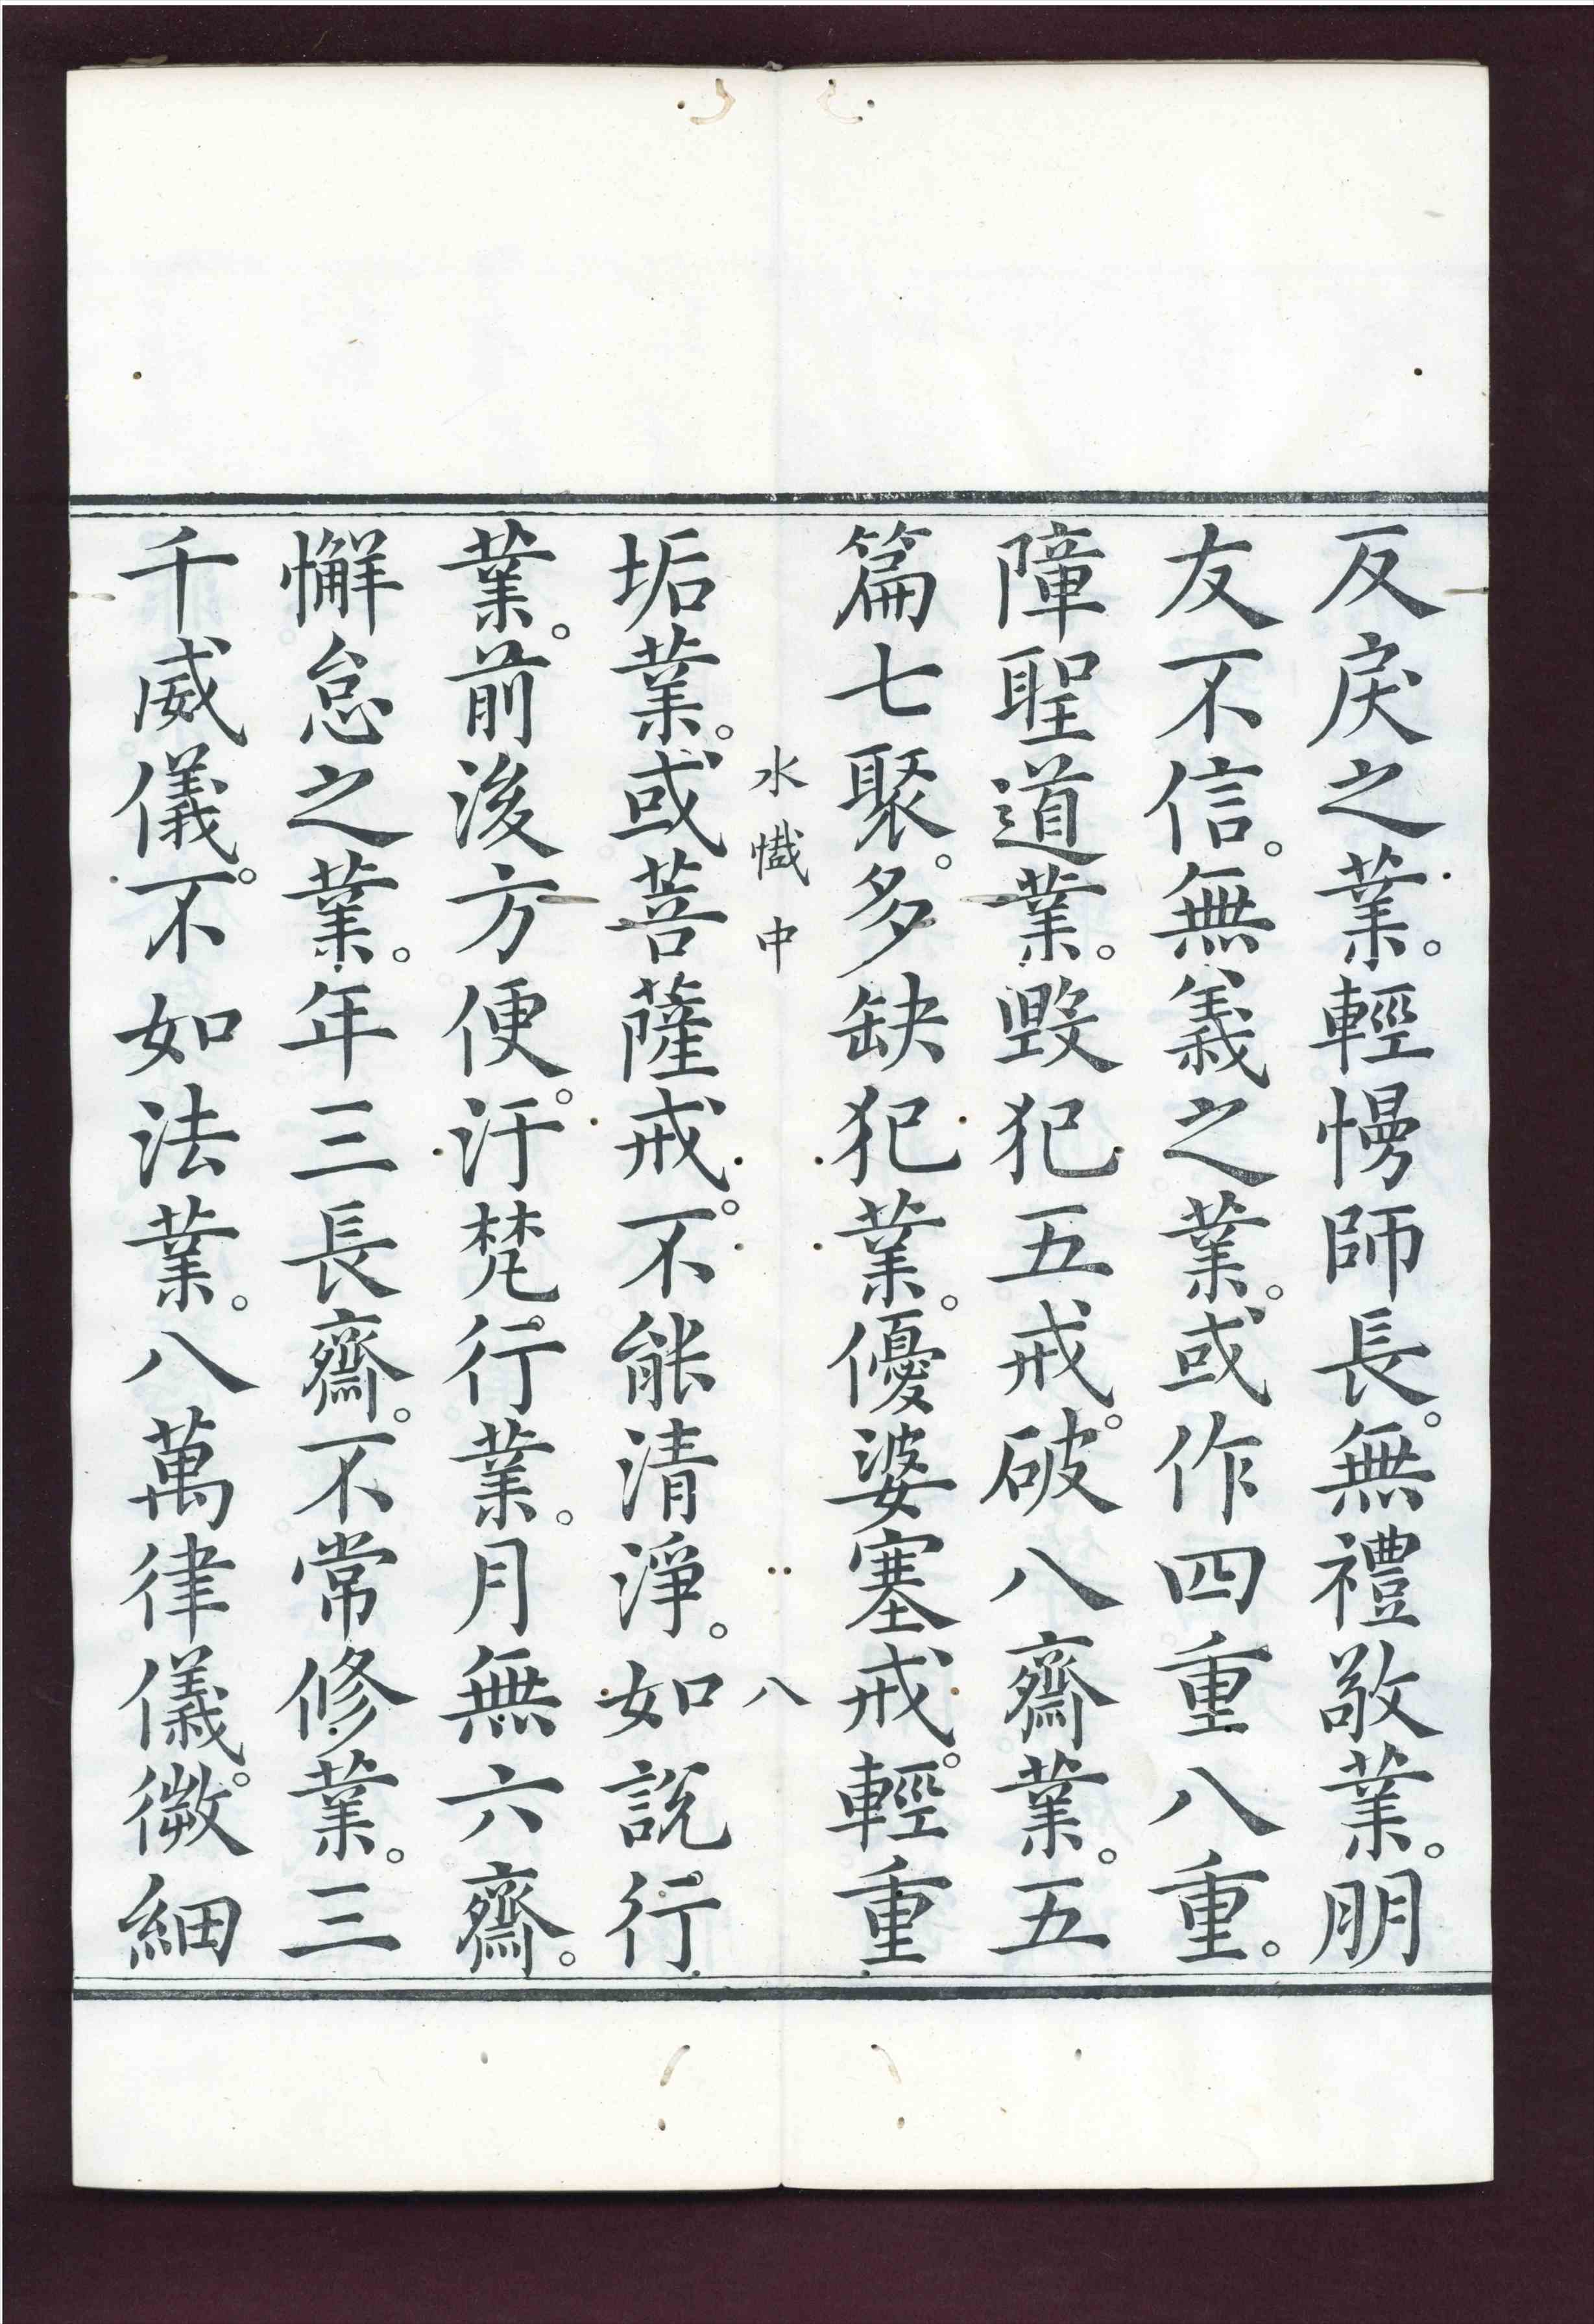 反戾之業。輕慢師長。無禮敬業。朋
友不信。無義之業。或作四重八重。
障聖道業。毀犯五戒。破八齋業。五
篇七聚。多缺犯業。優婆塞戒。輕重
水懺中 八
垢業。或菩薩戒。不能清淨。如說行
業。前後方便。汙梵行業。月無六齋。
懈怠之業。年三長齋。不常修業。三
千威儀。不如法業。八萬律儀。微細